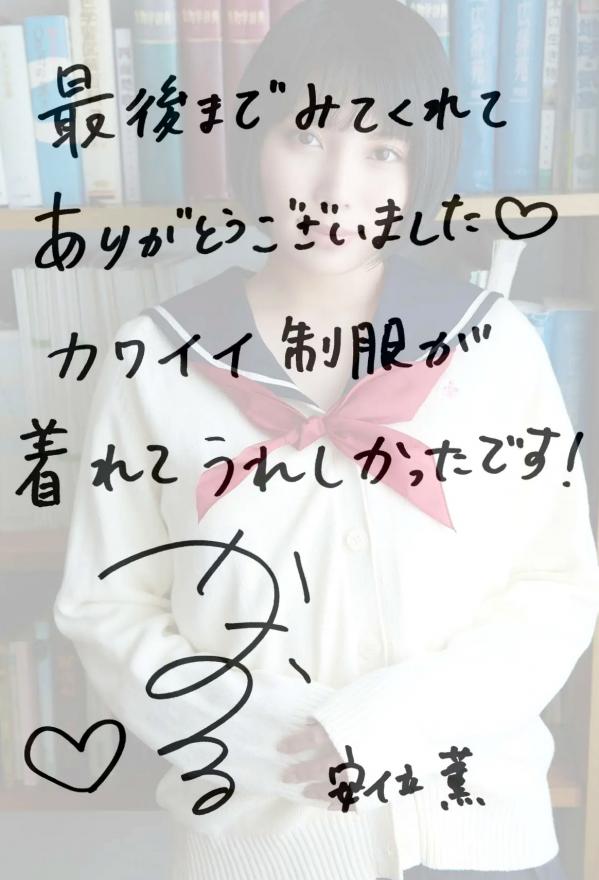 最後までみてくれて
ありがとうございました♡
カワイイ制服が
着れてうれしかったです!
かおる
♡
安位薫
広辞苑